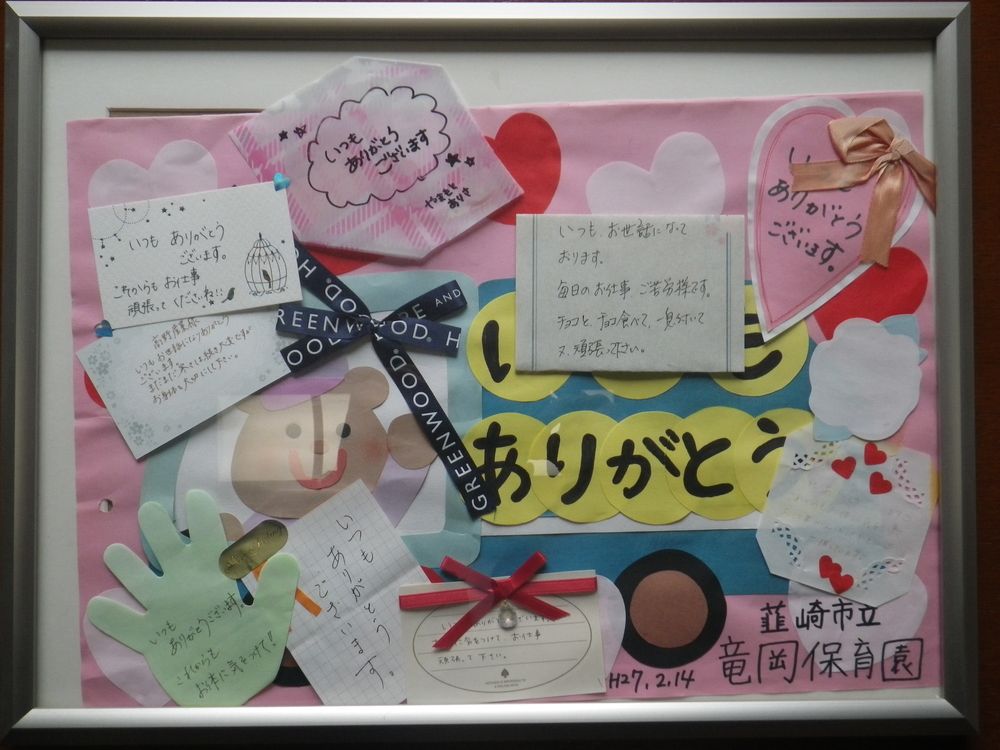 いつも
ありがとう
ございます
やまもと
ありさ
いつも ありがとう
ございます。
これからも お仕事
頑張って くださいね!!
いつもお世話になりありがとう
ございます。
まだまだ寒さは続き大変ですが
お身体も大切にして下さい。
GREENWOOD. H
GREENWOOD.
AND
いつも、お世話になって
おります。
毎日のお仕事 ご苦労様です。
チョコと、チョコ食べて、一息ついて
又、頑張って下さい。
ありがとう
ございます。
ありがとう
いつも
ありがとうございます。
これからも
お仕事に気をつけて!!
いつも
ありがとう
ございます。
気をつけて お仕事
頑張って 下さい。
H27.2.14
韮崎市立
竜岡保育園